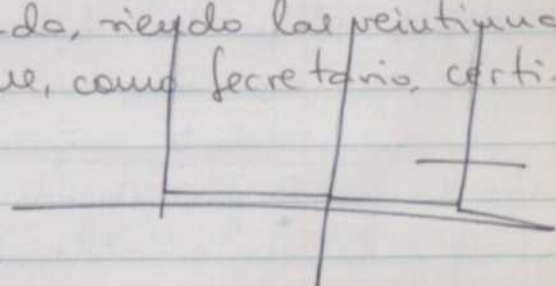 do, siendo las veintinue
ue, como Secretario, certi-